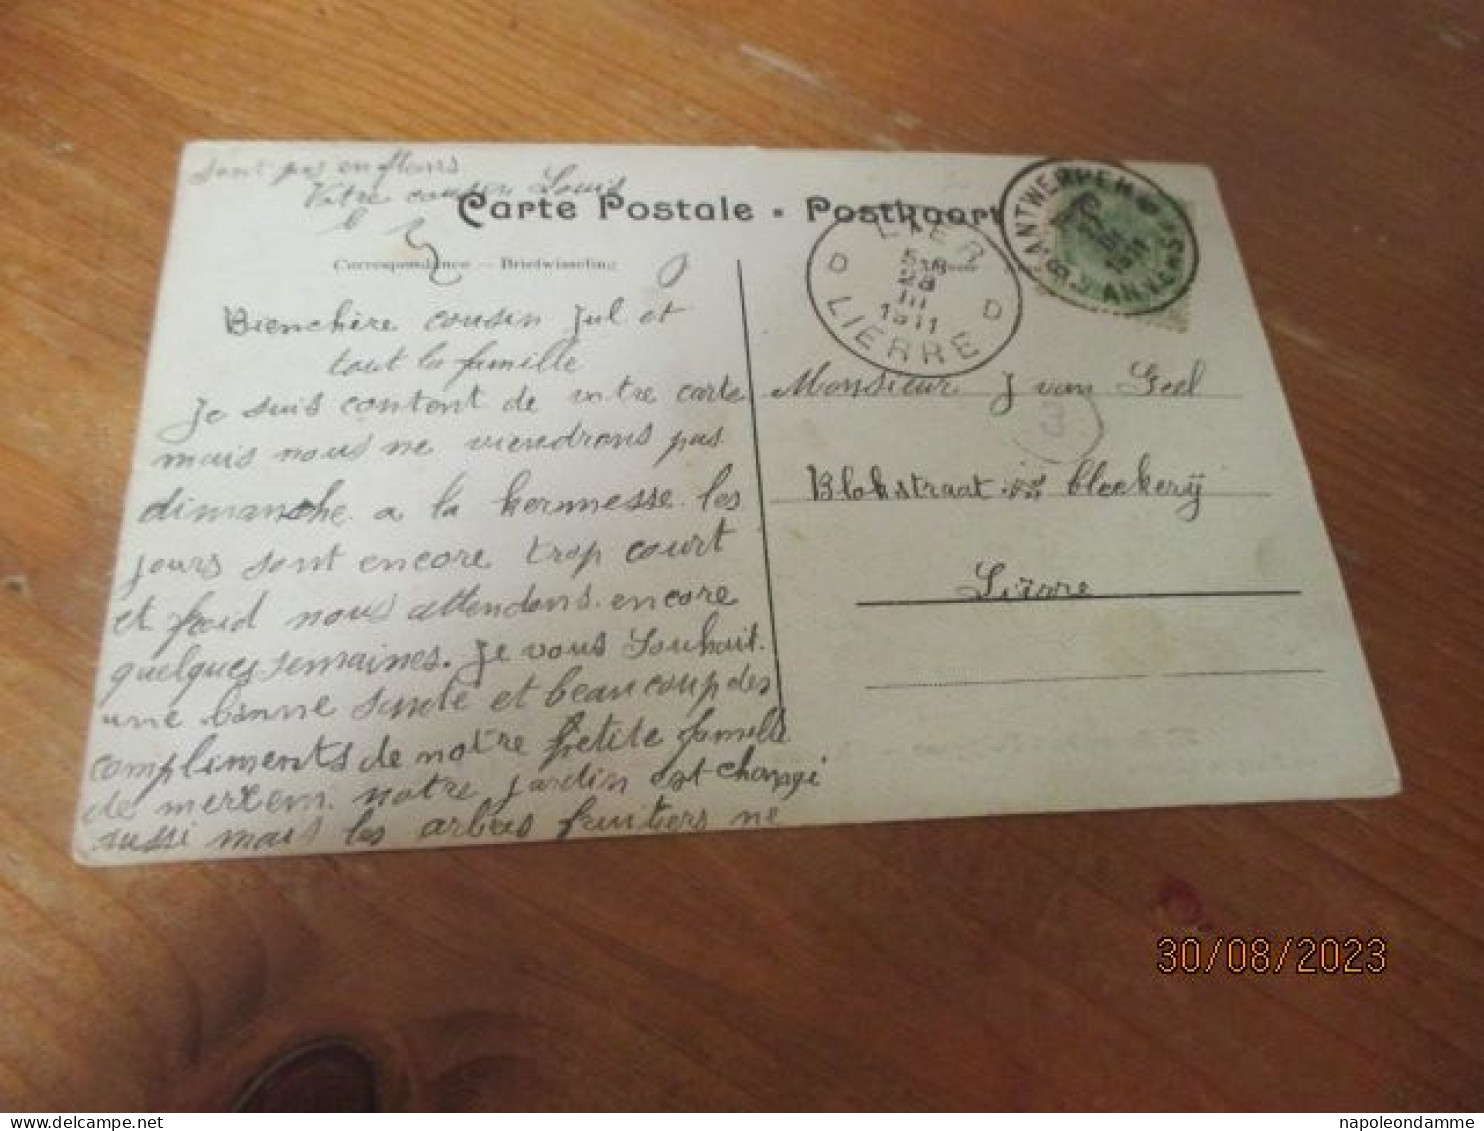 sont pas en fleurs
Votre cousin Louis
Carte Postale • Postkaart
Correspondance — Briefwisseling
Bienchère cousin Jul et
tout la famille
Je suis content de votre carte
mais nous ne viendrons pas
dimanche a la kermesse les
jours sont encore trop court
et froid nous attendons encore
quelques semaines. Je vous souhait
une bonne santé et beaucoup des
compliments de notre petite famille
de mertem. notre jardin est changé
aussi mais les arbres fruitiers ne
LIER
D D
28
III
1911
LIERRE
ANTWERPEN 6
ANVERS
1911
Monsieur J van Geel
3
Blokstraat bleekerij
Lierre
30/08/2023
napoleondamme